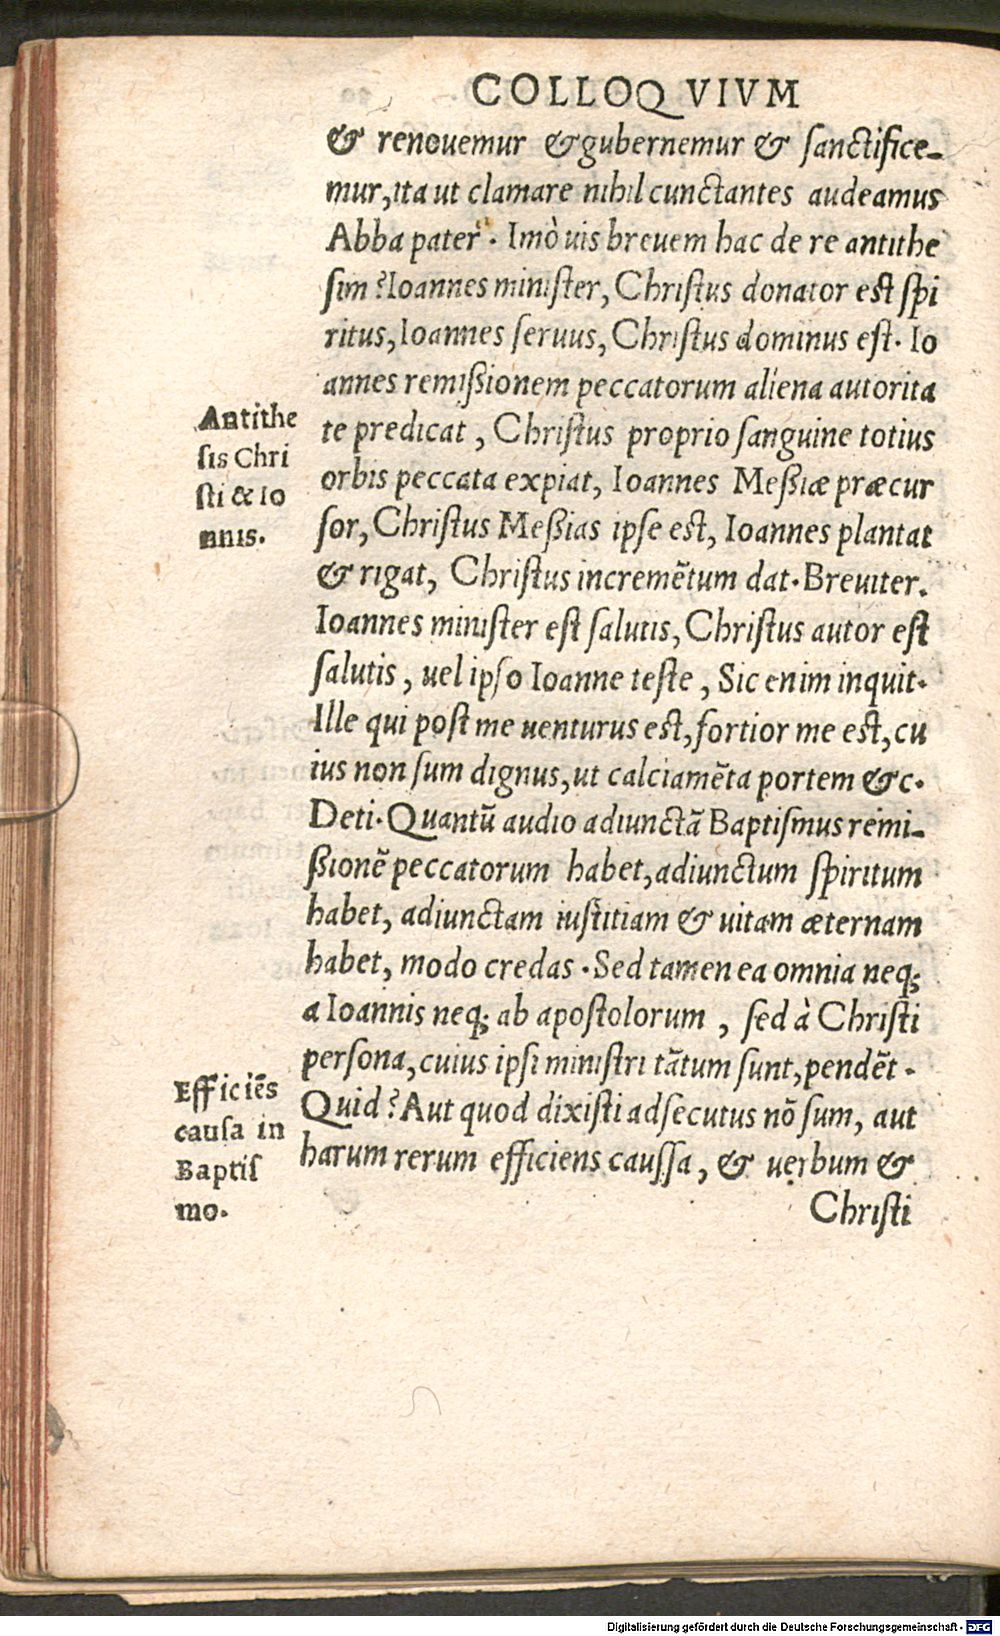 COLLOQ VIVM
& renouemur & gubernemur & sanctifice-
mur, ita ut clamare nihil cunctantes audeamus
Abba pater. Imò uis breuem hac de re antithe
sim? Ioannes minister, Christus donator est spi
ritus, Ioannes seruus, Christus dominus est. Io
annes remißionem peccatorum aliena autorita
Antithe
sis Chri
sti & Io
nnis.
te predicat, Christus proprio sanguine totius
orbis peccata expiat, Ioannes Meßiæ præcur
sor, Christus Meßias ipse est, Ioannes plantat
& rigat, Christus incremētum dat. Breuiter.
Ioannes minister est salutis, Christus autor est
salutis, uel ipso Ioanne teste, Sic enim inquit.
Ille qui post me uenturus est, fortior me est, cu
ius non sum dignus, ut calciamēta portem &c.
Deti. Quantū audio adiunctā Baptismus remi-
ßionē peccatorum habet, adiunctum spiritum
habet, adiunctam iustitiam & uitam æternam
habet, modo credas. Sed tamen ea omnia neq;
a Ioannis neq; ab apostolorum, sed à Christi
persona, cuius ipsi ministri tātum sunt, pendēt.
Efficiēs
causa in
Baptis
mo.
Quid? Aut quod dixisti adsecutus nō sum, aut
harum rerum efficiens caussa, & uerbum &
Christi
Digitalisierung gefördert durch die Deutsche Forschungsgemeinschaft - DFG